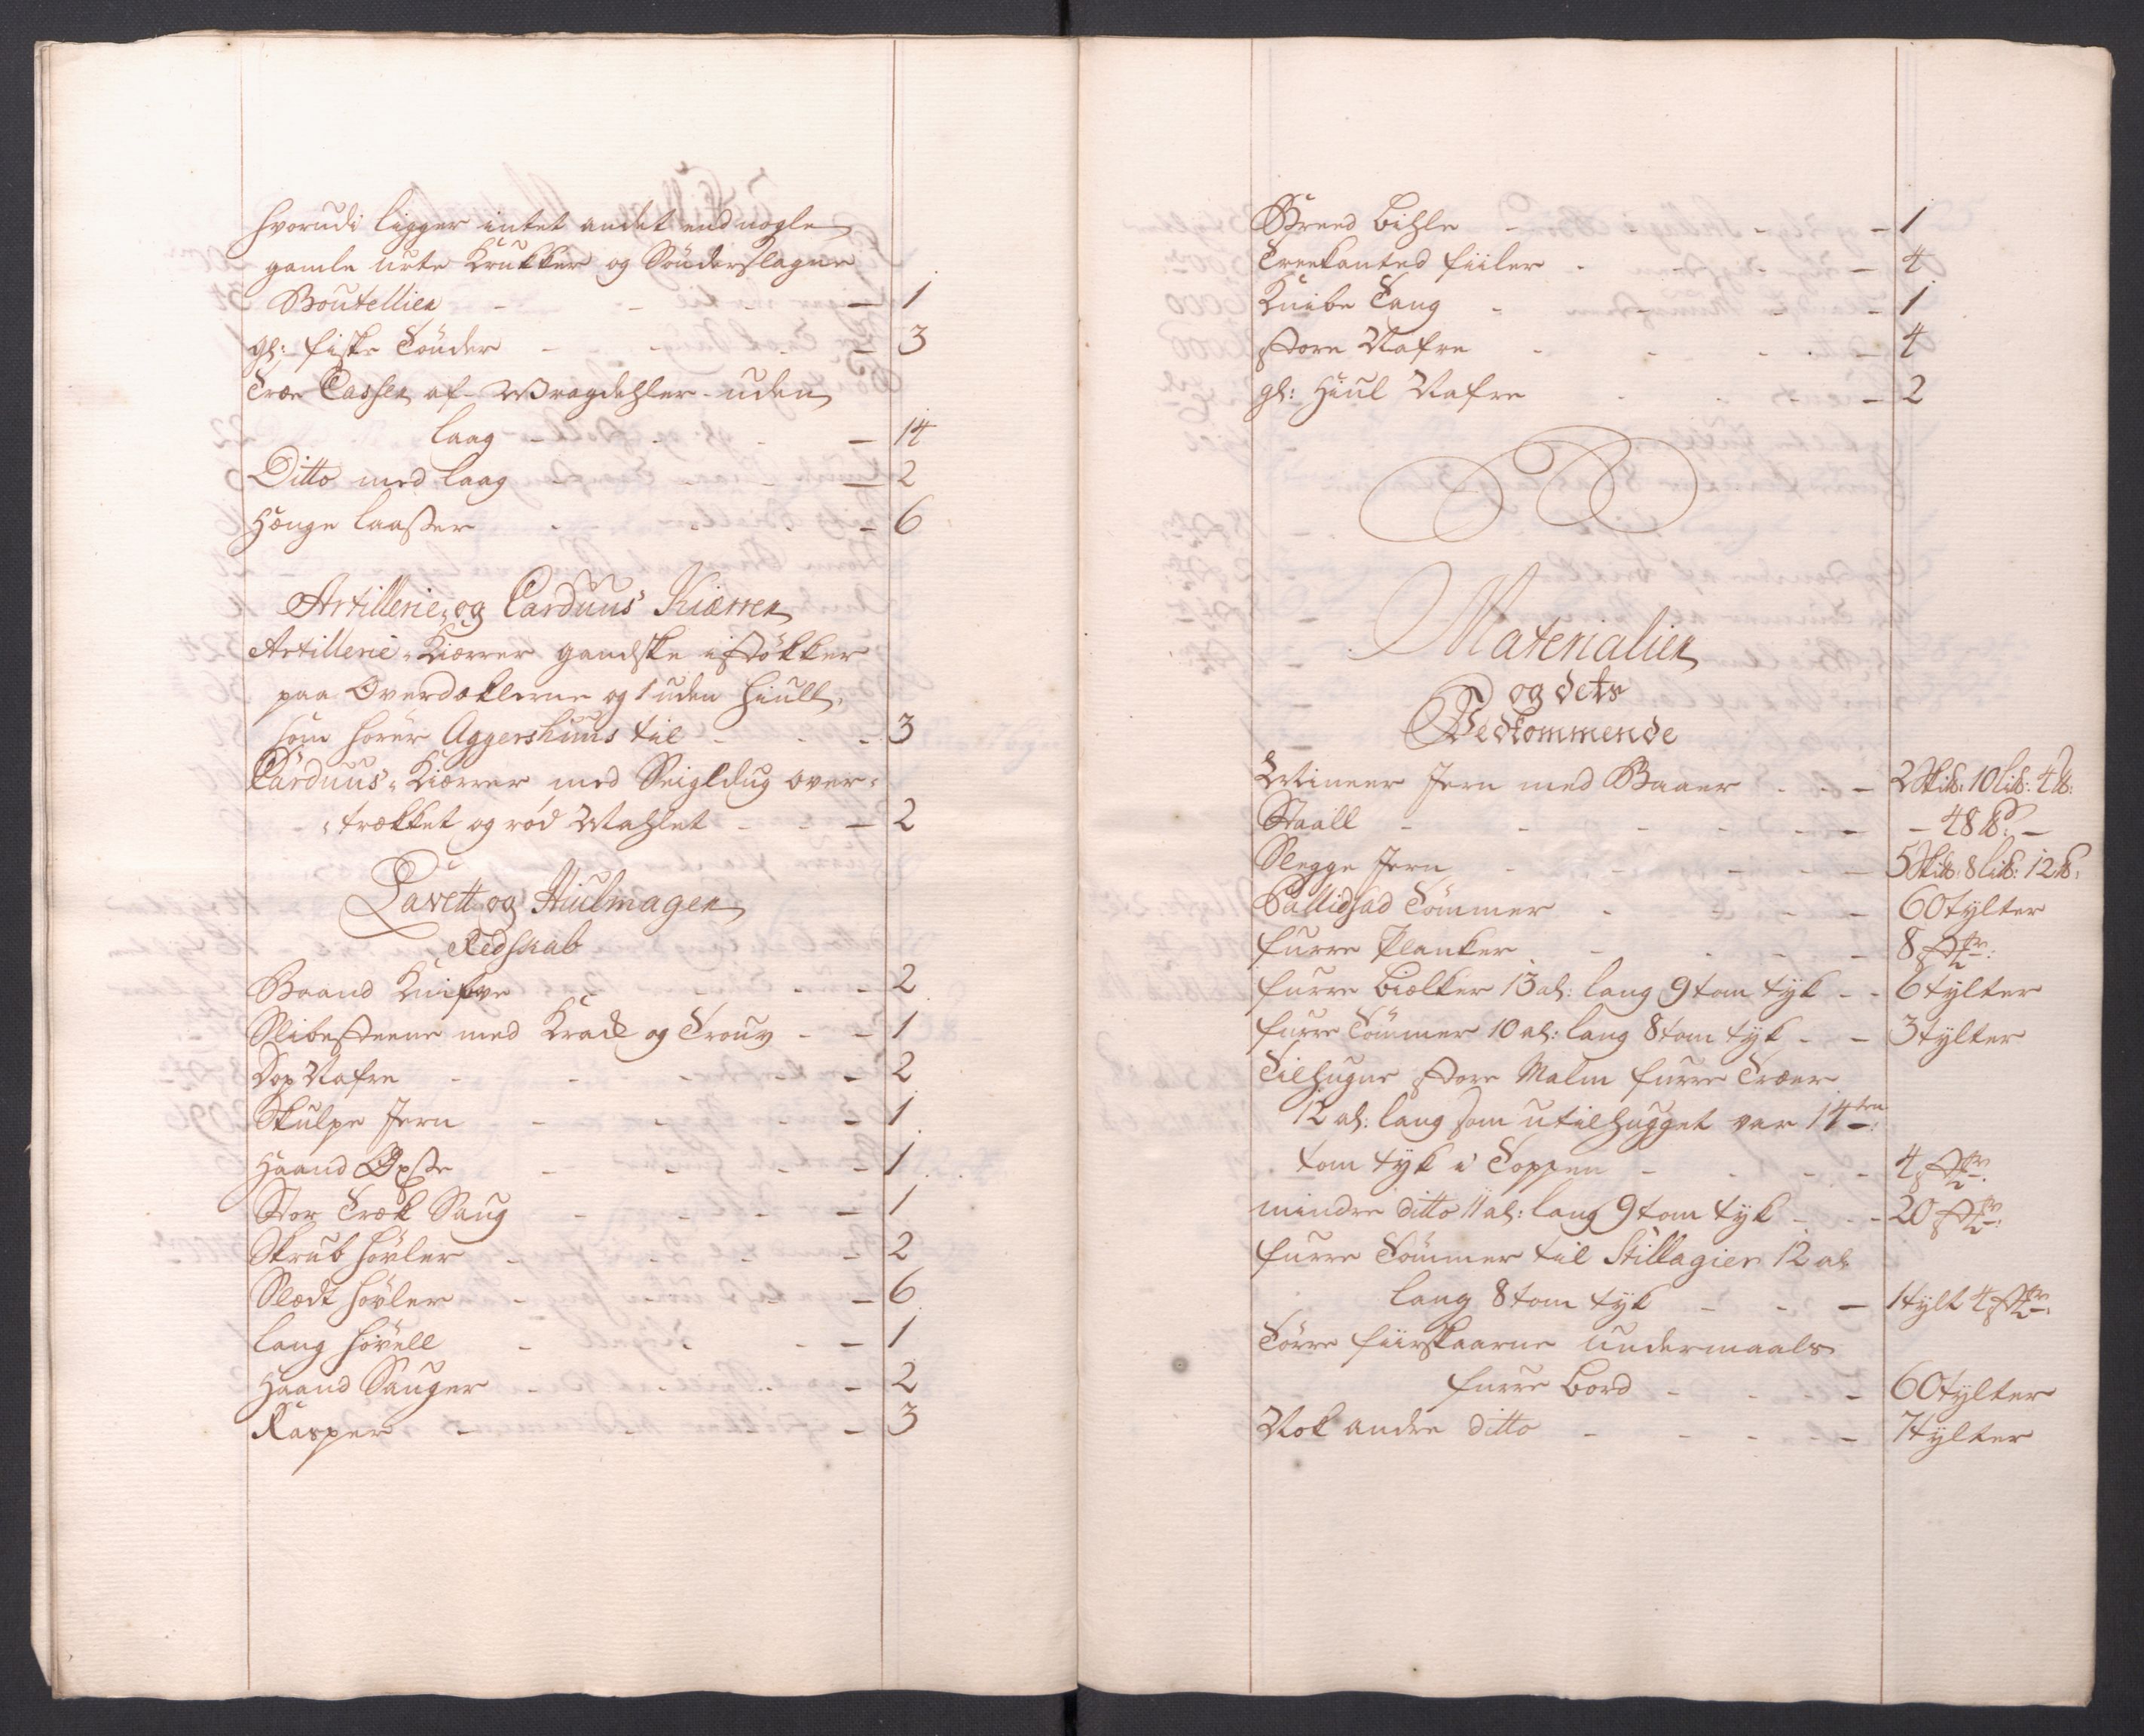 hvorudi ligger intet andet end nogle
gamle urte Krukker og Sønderslagne
Boutellier - - - 1
gl: fiske Tønder - - - 3
Træe Casser af Wragdehler uden
laag - - - 14
Ditto med laag - - - 2
Hænge laasser - - - 6
Artillerie og Carduus Kiærrer
Artillerie Kiærrer gandske i støkker
paa Overdæklerne og 1 uden hiull,
som hører Aggershuus til - - 3
Carduus Kiærrer med Seigldug over-
trækket og rød Mahlet - - - 2
Lavett og Hiulmager
Redskab
Baand Knifve - - - 2
Slibesteene med Krack og Trouv - - 1
Dop Nafre - - - 2
Skulpe Jern - - - 1
Haand Øxse - - - 1
Stor Træk Saug - - - 1
Skrub høvler - - - 2
Slædt høvler - - - 6
lang høvell - - - 1
Haand Sauger - - - 2
Rasper - - - 3
Breed bihle - - - 1
Treekanted fiiler - - - 4
Knibe Tang - - - 1
store Nafre - - - 4
gl: Hiul Nafre - - - 2
Materialier
og dets
Vedkommende
Mineer Jern med Baaer - - - 2 Skilb: 10 lilb: 4 lb:
Staall - - - 48 lb: -
Slegge Jern - - - 5 Skilb: 8 lilb: 12 lb:
Pallidsad Tømmer - - - 60 tylter
furre Planker - - - 8 st:
furre bielker 13 al: lang 9 tom tyk - - 6 tylter
furre Tømmer 10 al: lang 8 tom tyk - - 3 tylter
Tilhugne store Malm furre Træer
12 al: lang som utilhugget var 14 ten
tom tyk i Toppen - - - 4 st:
mindre ditto 11 al: lang 9 tom tyk - - - 20 st:
furre Tømmer til Stillagier 12 al
lang 8 tom tyk - - - 1 tylt 4 st:
Tørre fiirskaarne undermaals
furre bord - - - 60 tylter
Nok andre ditto - - - 7 tylter